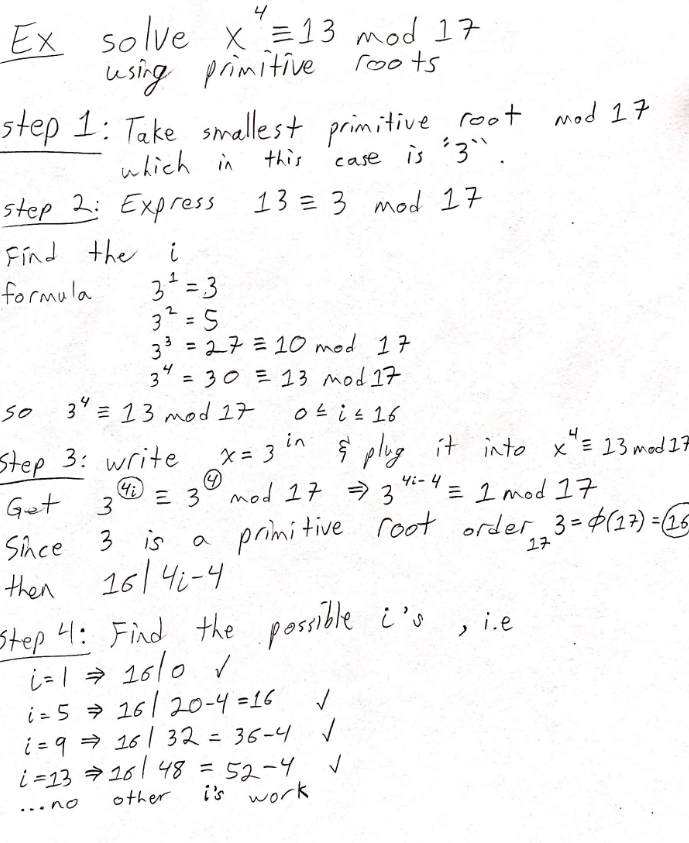 Ex solve x⁴ ≡ 13 mod 17
using primitive roots
step 1: Take smallest primitive root mod 17
which in this case is "3".
step 2: Express 13 ≡ 3 mod 17
Find the i
formula 3¹ = 3
3² = 5
3³ = 27 ≡ 10 mod 17
3⁴ = 30 ≡ 13 mod 17
so 3⁴ ≡ 13 mod 17 0 ≤ i ≤ 16
Step 3: write x = 3 in & plug it into x⁴ ≡ 13 mod 17
Get 3^(4i) ≡ 3^(4) mod 17 ⇒ 3^(4i-4) ≡ 1 mod 17
Since 3 is a primitive root order₁₇ 3 = ϕ(17) = 16
then 16 | 4i-4
Step 4: Find the possible i's, i.e
i=1 ⇒ 16|0 ✓
i=5 ⇒ 16| 20-4 = 16 ✓
i=9 ⇒ 16| 32 = 36-4 ✓
i=13 ⇒ 16| 48 = 52-4 ✓
...no other i's work